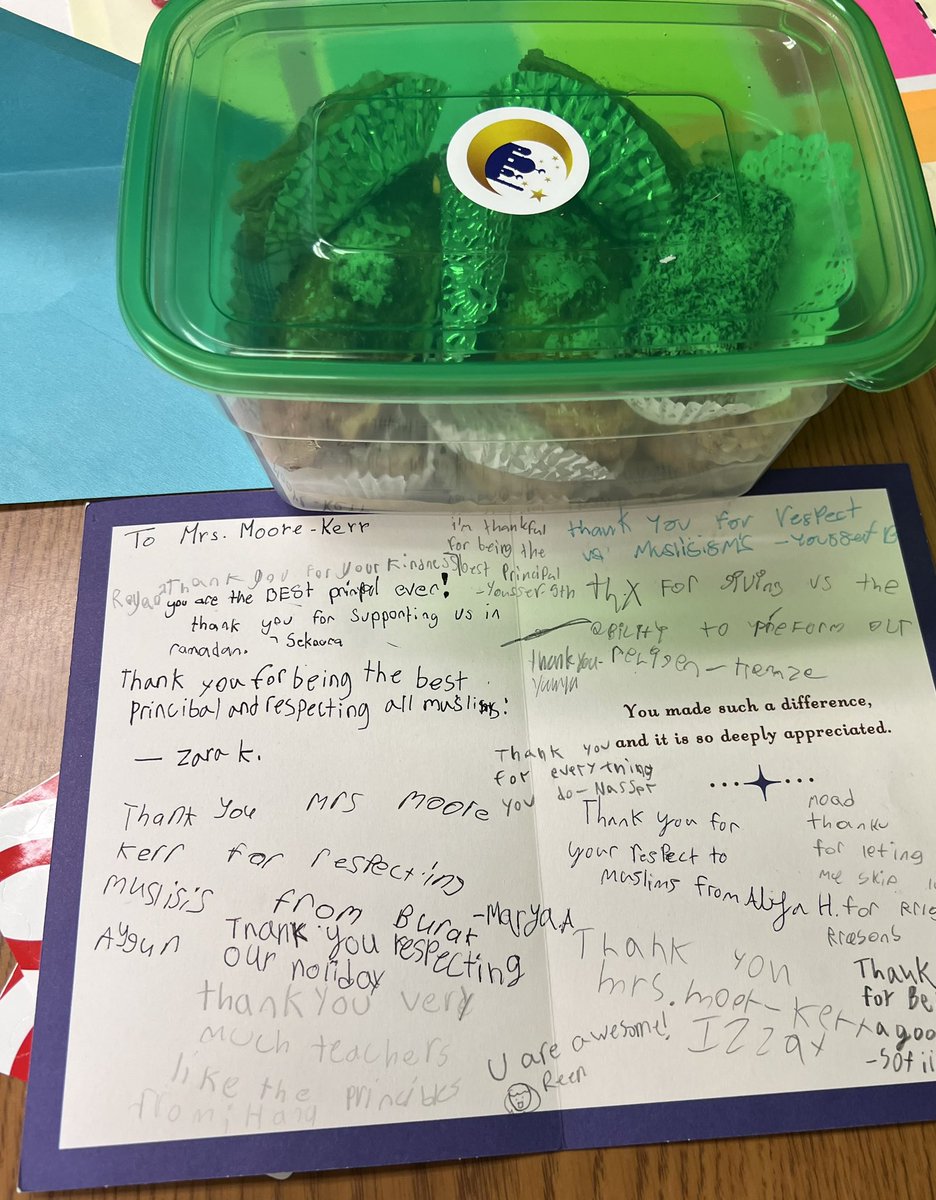 To Mrs. Moore-Kerr
Thank you for your kindness
you are the BEST prinipal ever!
thank you for supporting us in
ramadan. - Sekoura
Thank you for being the best
principal and respecting all muslims!
— Zara K.
Thank you mrs moore
kerr for respecting
muslisis from Burak
Aygun
Thank you respecting
our holiday
-Marya.A
thank you very
much teachers
like the principles
from: Hana
i'm thankful
for being the
best Principal
-Yousser-9th
Thank you
for everything
you do - Nasser
U are awesome!
Reem
thank you for respect
us Muslisism's -Youssef B
thx for giving us the
ability to preform our
religen - Hamze
thank you-
Yahya
You made such a difference,
and it is so deeply appreciated.
Thank you for
your respect to
muslims from H.
moad
thanku
for leting
me skip
for
rreasons
Thank you
mrs. moor-kerr
Izzat
Thank
for Be
a goo